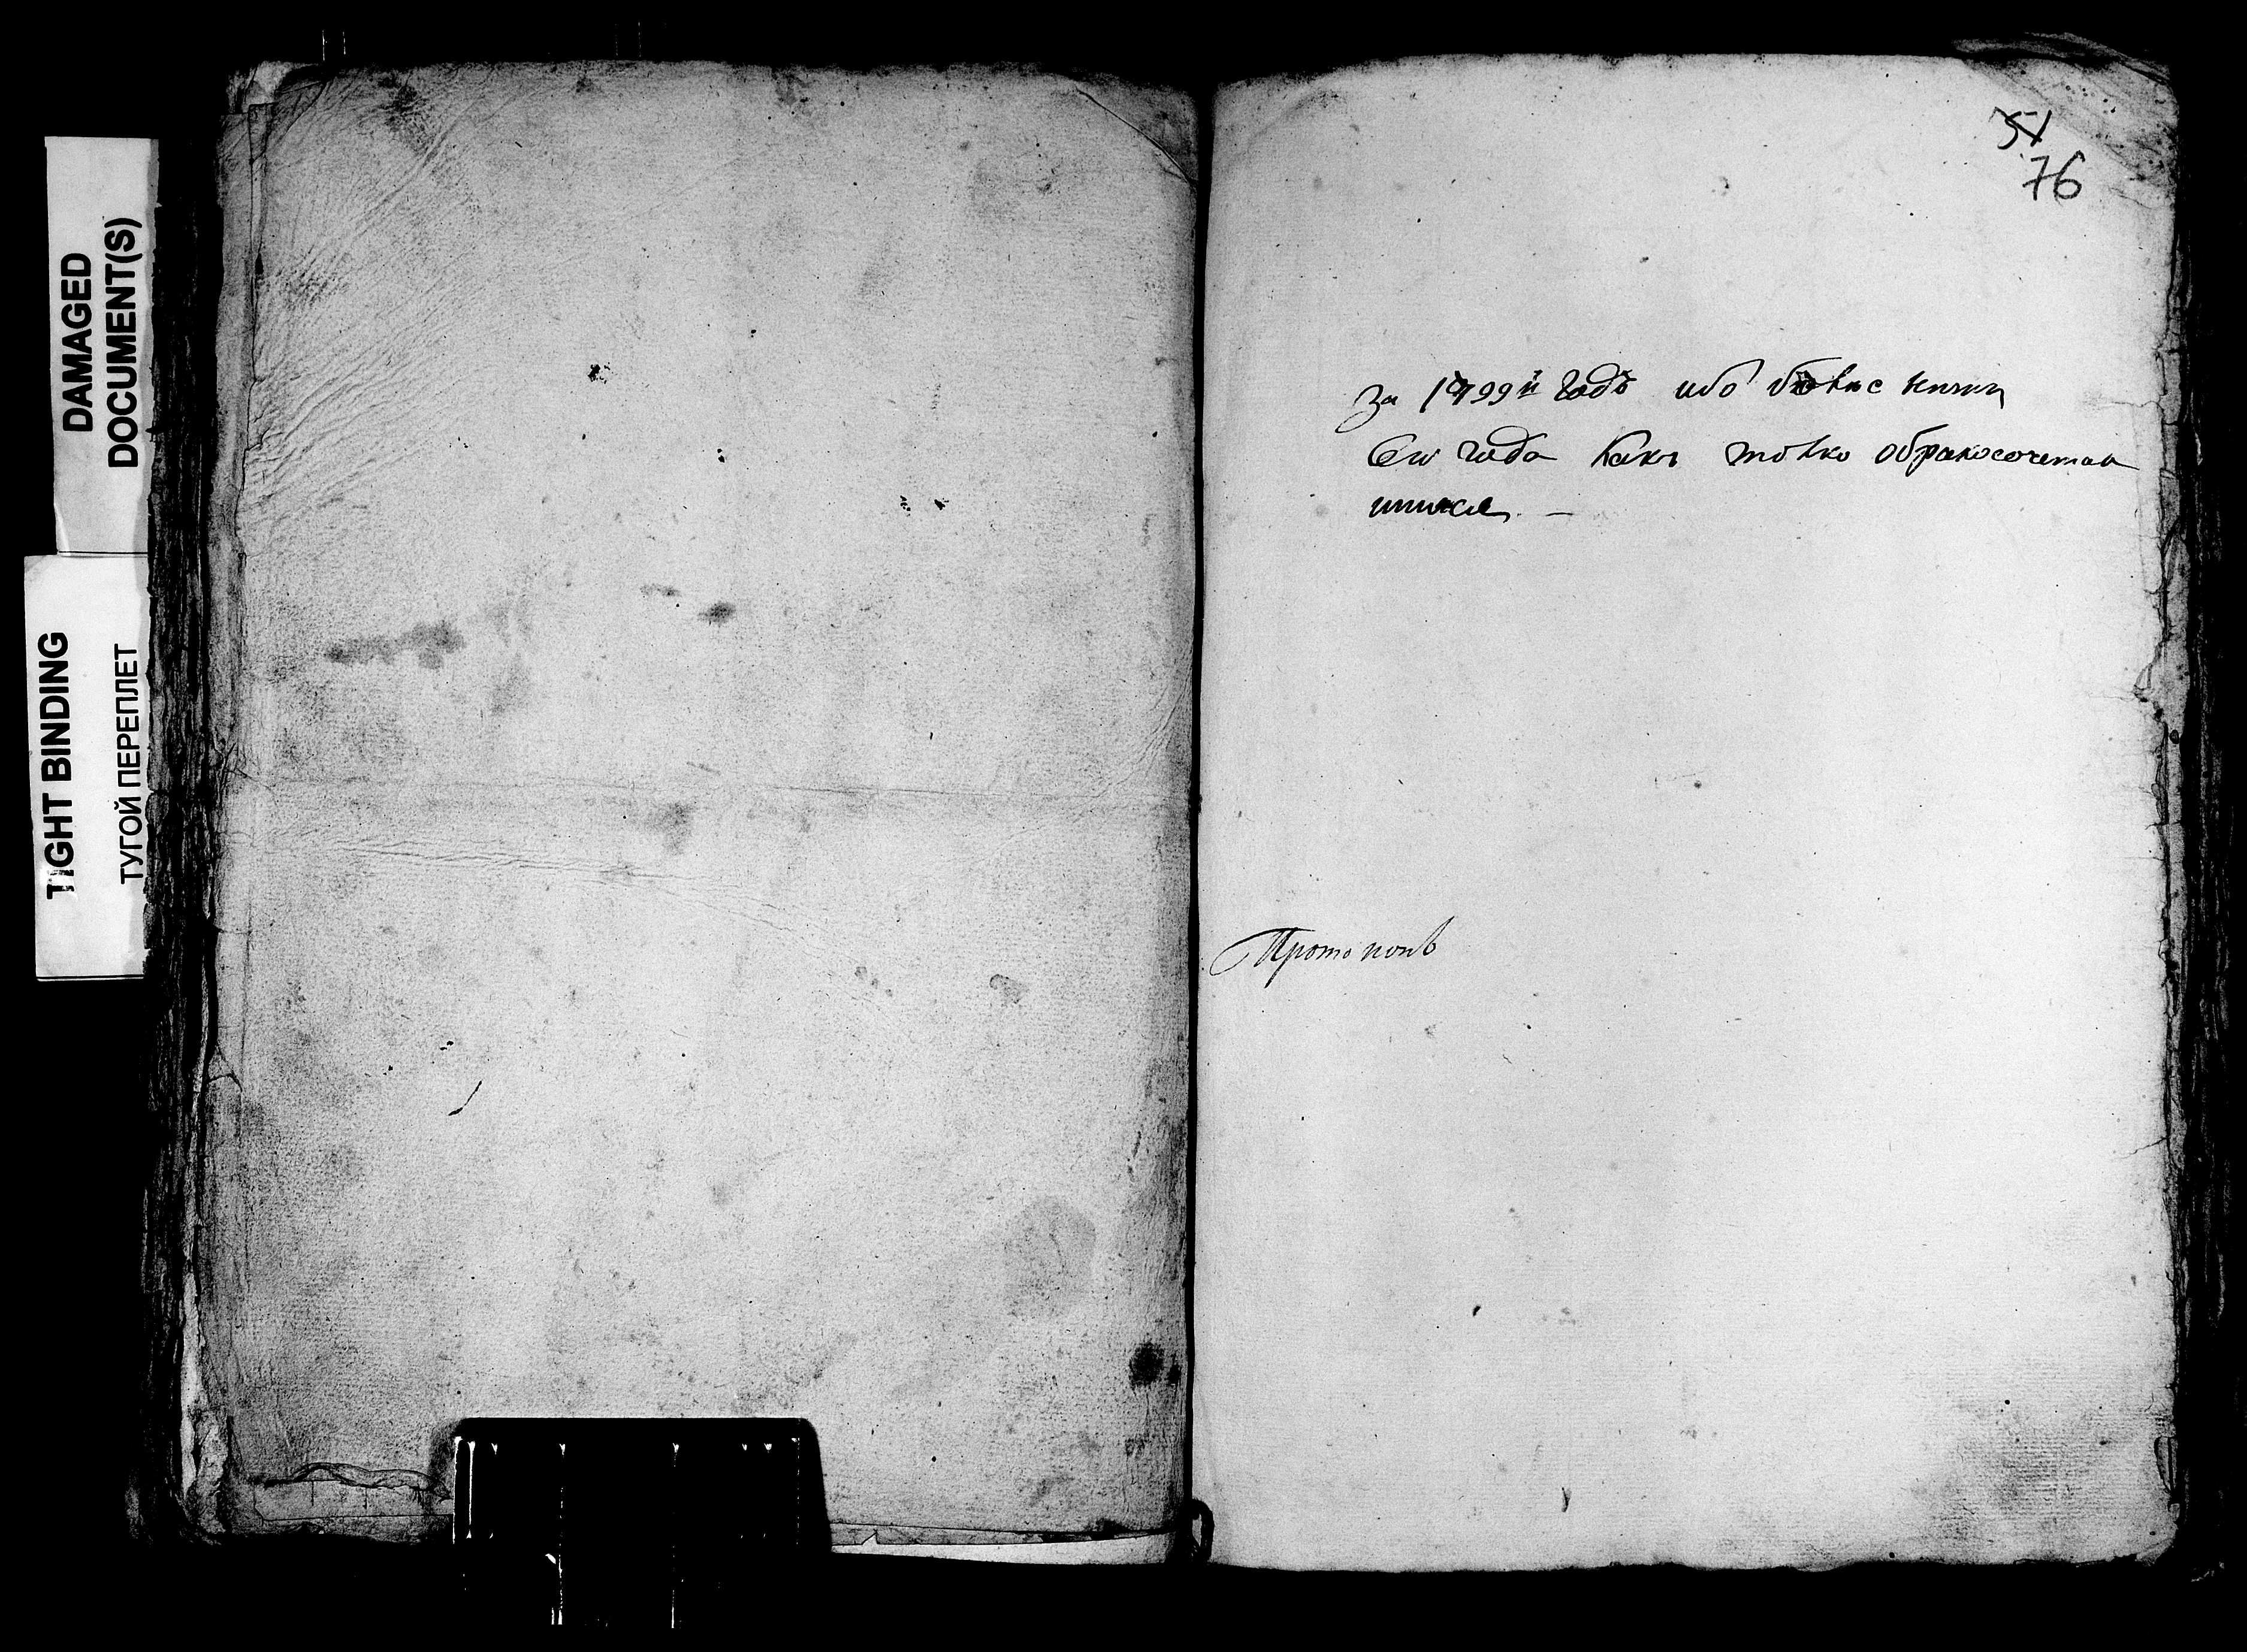 DAMAGED
DOCUMENT(S)
TIGHT BINDING
ТУГОЙ ПЕРЕПЛЕТ
51
76
за 1799й годъ ибо книги
Сего года какъ токмо обракосочетав
шихся. —
Протопопъ